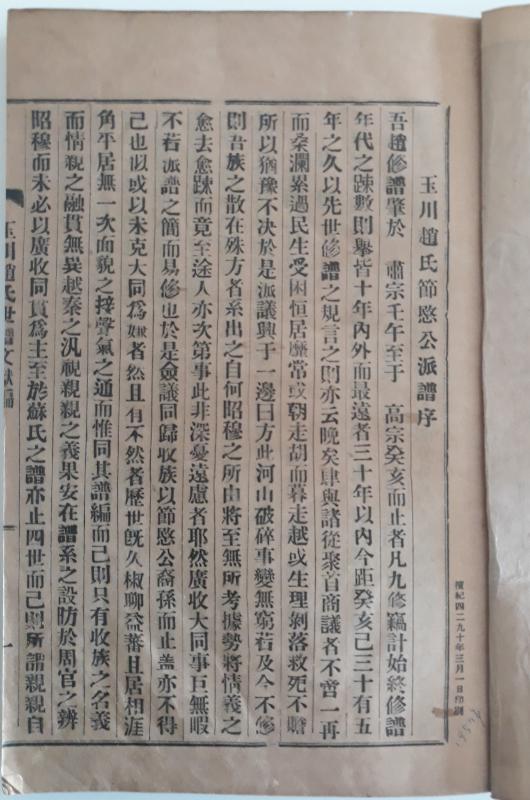 玉川趙氏節愍公派譜序
吾趙修譜肇於 肅宗壬午至于 高宗癸亥而止者凡九修竊計始終修譜
年代之踈數則擧皆十年內外而最遠者三十年以內今距癸亥已三十有五
年之久以先世修譜之規言之則亦云晩矣肆與諸從聚首商議者不啻一再
而桑瀾累遇民生受困恒居靡常或朝走胡而暮走越或生理剝落救死不贍
所以猶豫不决於是派議興于一邊曰方此河山破碎事變無窮若及今不修
則吾族之散在殊方者系出之自何昭穆之所由將至無所考據勢將情義之
愈去愈踈而竟至途人亦次第事此非深憂遠慮者耶然廣收大同事巨無暇
不若派譜之簡而易修也於是僉議同歸收族以節愍公裔孫而止盖亦不得
已也似或以未克大同爲嫌者然且有不然者歷世旣久椒聊益蕃且居相涯
角平居無一次面貌之接聲氣之通而惟同其譜編而已則只有收族之名義
而情親之融貫無異越秦之汎視親親之義果安在譜系之設昉於周官之辨
昭穆而未必以廣收同貫爲主至於蘇氏之譜亦止四世而已則所謂親親自
玉川趙氏世譜文獻編
一
檀紀四二九十年三月一日印刷